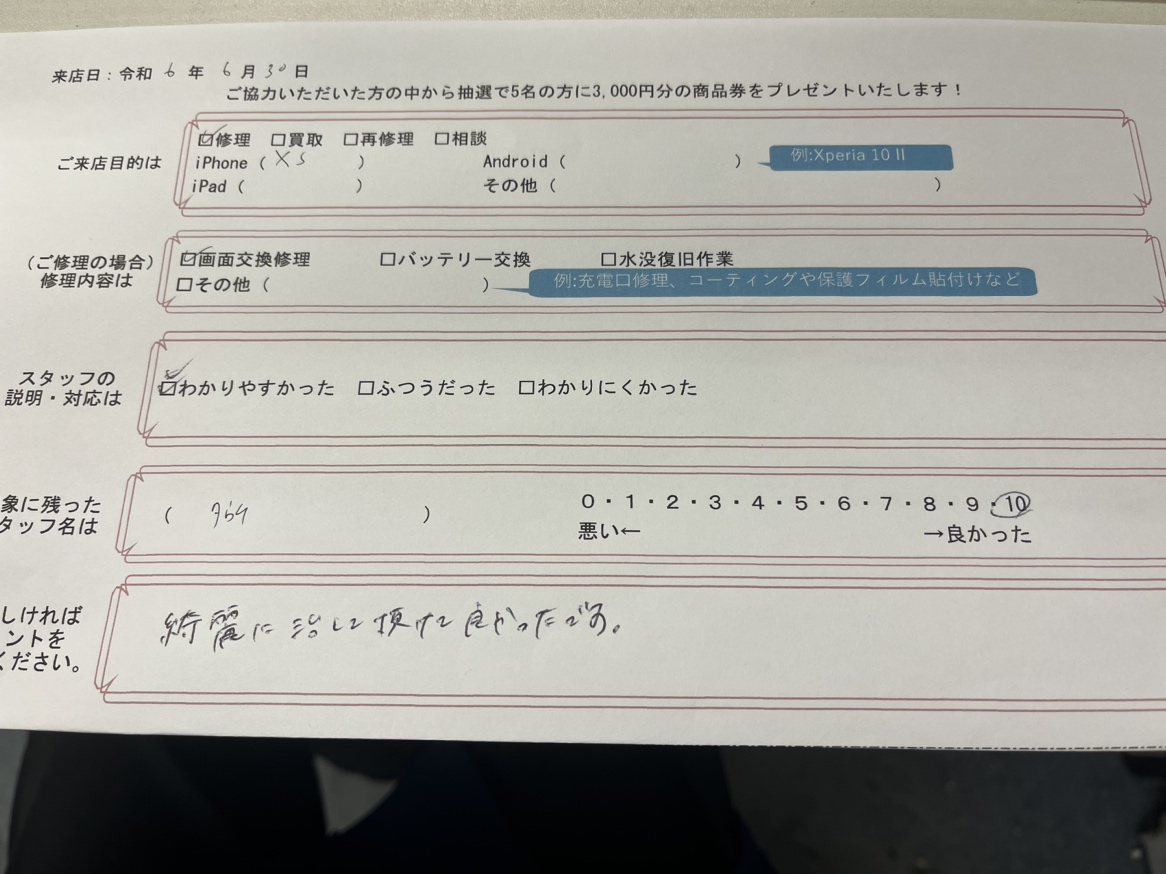 来店日：令和 6 年 6 月 30 日
ご協力いただいた方の中から抽選で5名の方に3,000円分の商品券をプレゼントいたします！
ご来店目的は
☑修理 □買取 □再修理 □相談
iPhone（ XS ） Android（ ） 例:Xperia 10 II
iPad（ ） その他（ ）
（ご修理の場合）
修理内容は
☑画面交換修理 □バッテリー交換 □水没復旧作業
□その他（ ） 例:充電口修理、コーティングや保護フィルム貼付けなど
スタッフの
説明・対応は
☑わかりやすかった □ふつうだった □わかりにくかった
象に残った
タッフ名は
（ ）
0・1・2・3・4・5・6・7・8・9・10
悪い← →良かった
しければ
ントを
ください。
綺麗に治して頂けて良かったです。